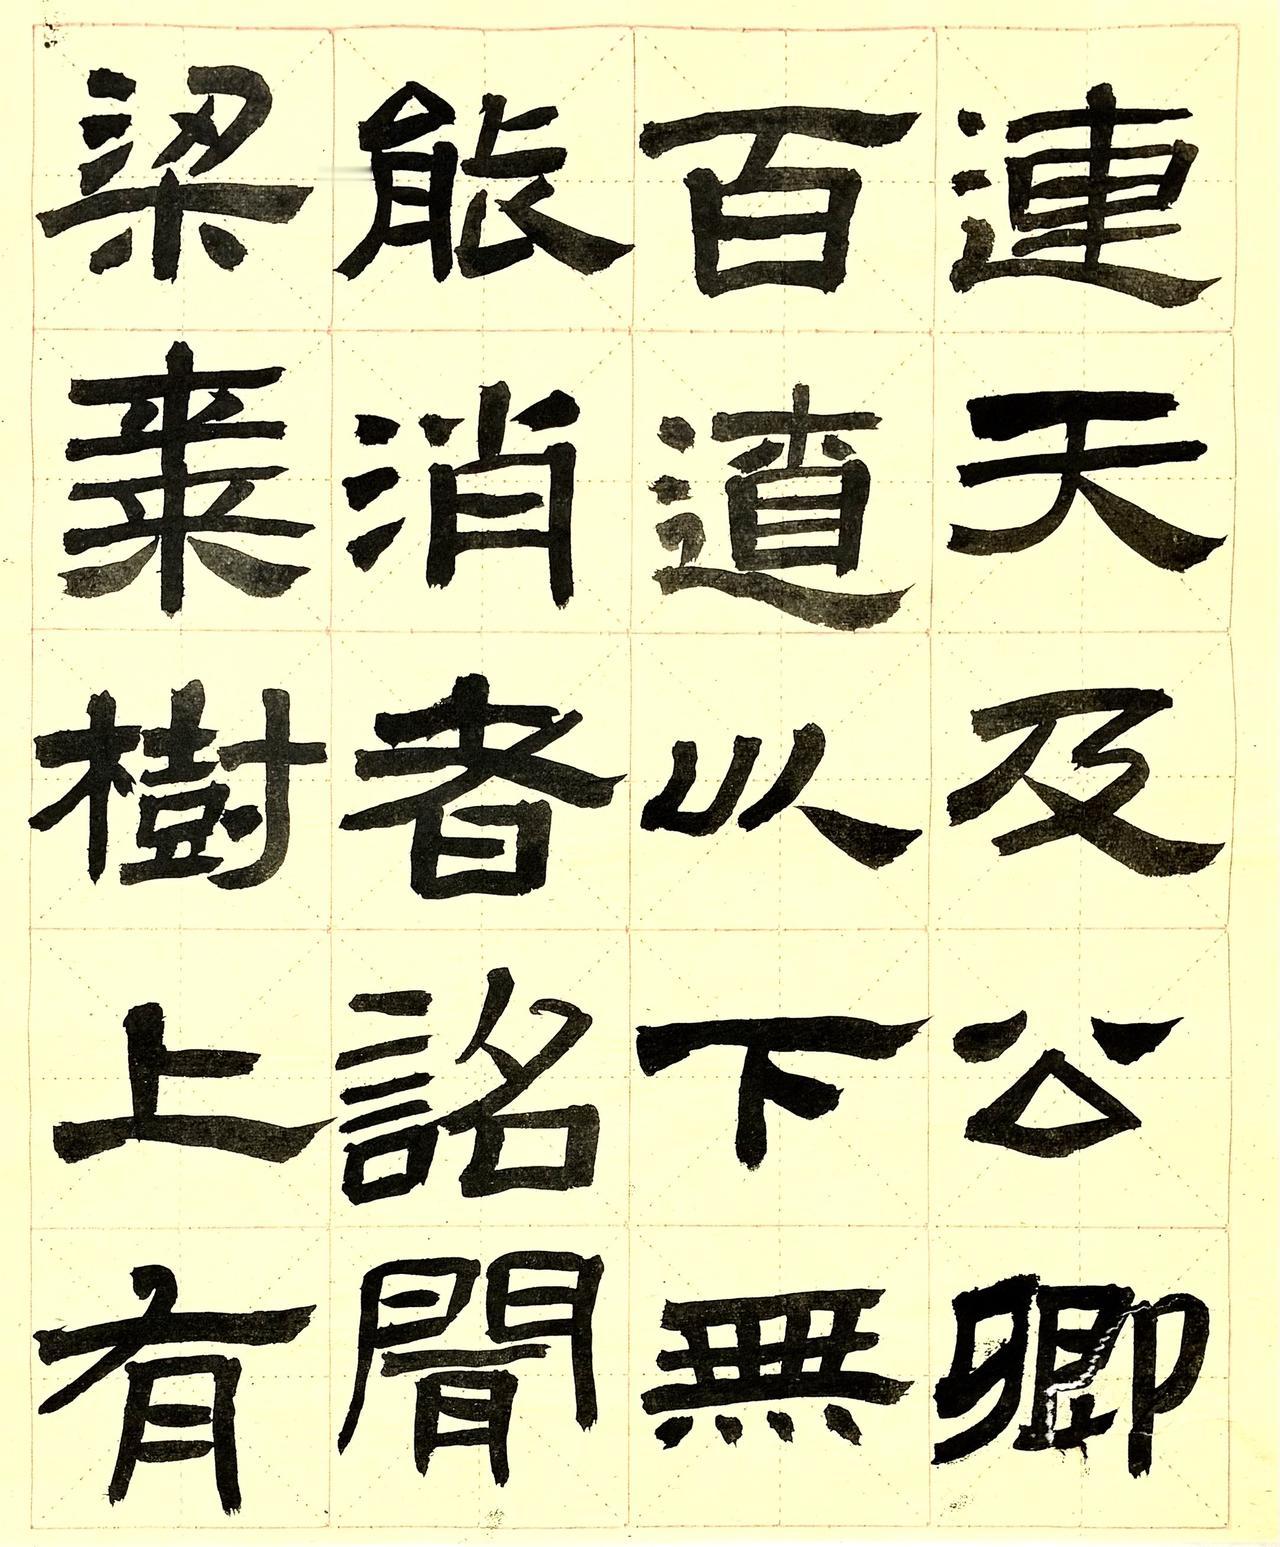 連天及公卿
百遼以下無
能消者詔聞
梁棗樹上有